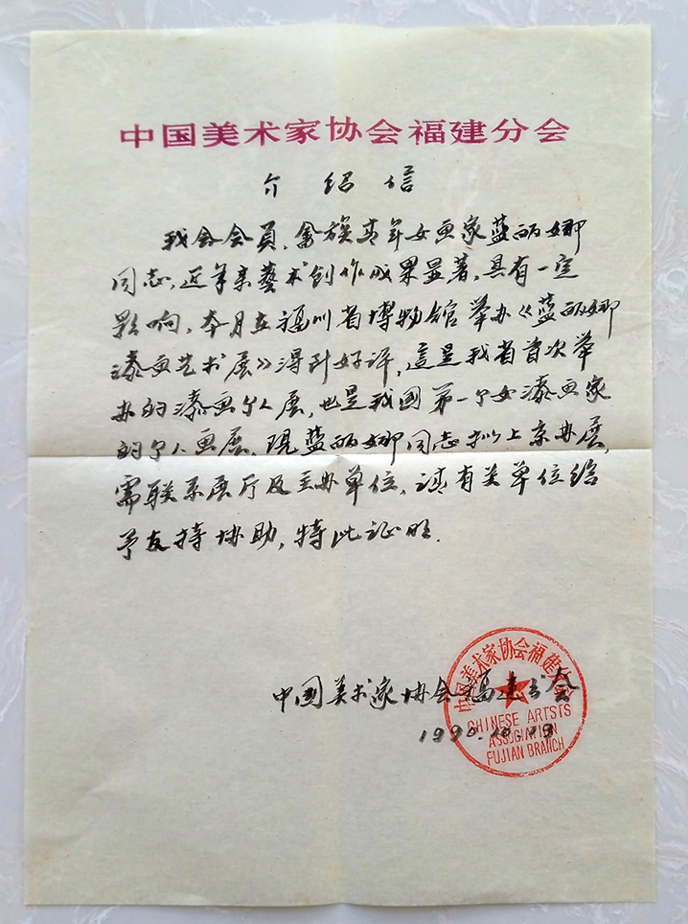 中国美术家协会福建分会
介绍信
我会会员、畲族青年女画家蓝丽娜
同志，近年来藝术创作成果显著，具有一定
影响，本月在福州省博物馆举办《蓝丽娜
漆画艺术展》得到好评，這是我省首次举
办的漆画个人展，也是我国第一个女漆画家
的个人画展，现蓝丽娜同志拟上京办展，
需联系展厅及主办单位，请有关单位给
予支持协助，特此证明.
中国美术家协会福建分会
1990.10.19
中国美术家协会福建分会
CHINESE ARTSTS
ASSOCIATION
FUJIAN BRANCH